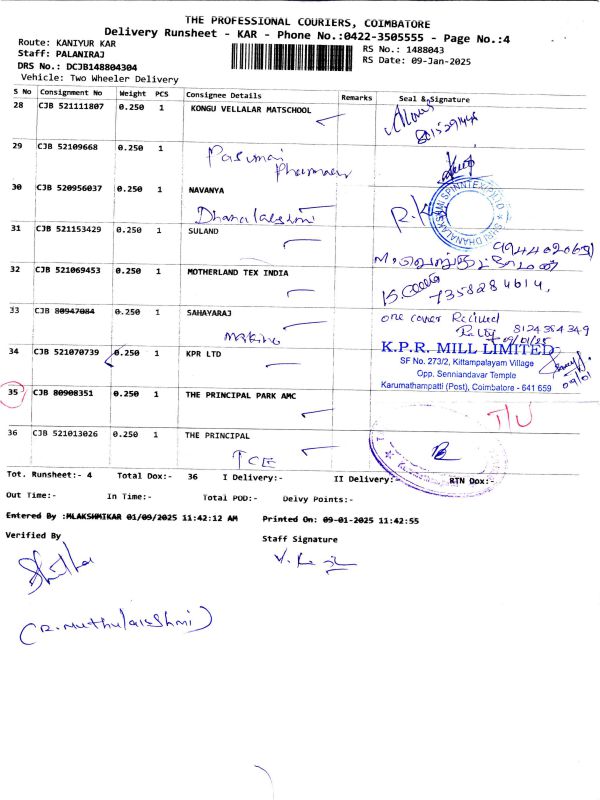 THE PROFESSIONAL COURIERS, COIMBATORE
Delivery Runsheet - KAR - Phone No.:0422-3505555 - Page No.:4
Route: KANIYUR KAR
RS No.: 1488043
Staff: PALANIRAJ
RS Date: 09-Jan-2025
DRS No.: DCJB148804304
Vehicle: Two Wheeler Delivery
S No Consignment No Weight PCS Consignee Details Remarks Seal & Signature
28 CJB 521111807 0.250 1 KONGU VELLALAR MATSCHOOL
29 CJB 52109668 0.250 1
Pasumai
Pharmacy
30 CJB 520956037 0.250 1 NAVANYA
Dhanalakshmi
SHRI DHANALAKSHMI SPINNTEX (P) LTD
31 CJB 521153429 0.250 1 SULAND
32 CJB 521069453 0.250 1 MOTHERLAND TEX INDIA
7358284614,
33 CJB 80947084 0.250 1 SAHAYARAJ
one cover Recived
8124384349
34 CJB 521070739 0.250 1 KPR LTD
K.P.R. MILL LIMITED
SF No. 273/2, Kittampalayam Village
Opp. Senniandavar Temple
Karumathampatti (Post), Coimbatore - 641 659
09/01
35 CJB 80908351 0.250 1 THE PRINCIPAL PARK AMC
T/U
36 CJB 521013026 0.250 1 THE PRINCIPAL
TCE
Tot. Runsheet:- 4 Total Dox:- 36 I Delivery:- II Delivery:- RTN Dox:-
Out Time:- In Time:- Total POD:- Delvy Points:-
Entered By :MLAKSHMIKAR 01/09/2025 11:42:12 AM Printed On: 09-01-2025 11:42:55
Verified By
Staff Signature
(R.Muthulakshmi)